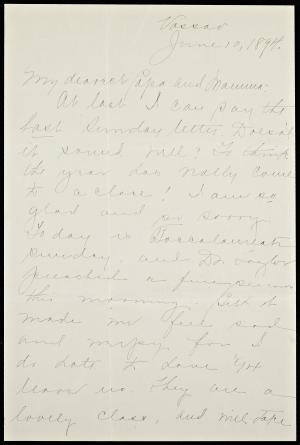 Vassar
June 10, 1894.
My dearest Papa and Mamma-
At last I can say the
last Sunday letter. Doesn't
it sound well? To think
the year has really come
to a close! I am so
glad and so sorry.
Today is Baccalaureate
Sunday, and Dr. Taylor
preached a fine sermon
this morning. But it
made me feel sad
and weepy for I
do hate to have '94
leave us. They are a
lovely class, and will take